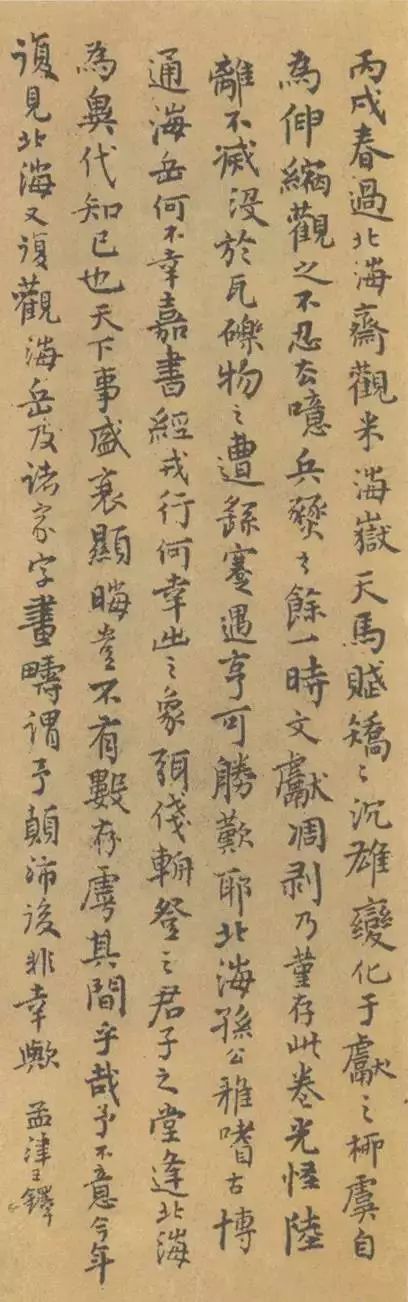 丙戌春過北海齋觀米海嶽天馬賦矯〻沉雄變化于獻之柳虞自
為伸縮觀之不忍去噫兵燹之餘一時文獻凋剥乃董存此卷光怪陸
離不滅没於瓦礫物之遭繇蹇遇亨可勝歎耶北海孫公雅嗜古博
通海岳何不幸嘉書經戎行何幸出之象弭伐輈登之君子之堂逢北海
為異代知已也天下事盛衰顯晦豈不有數存虖其間乎哉予不意今年
復見北海又復觀海岳及諸家字畫疇謂予顛沛後非幸歟 孟津王鐸